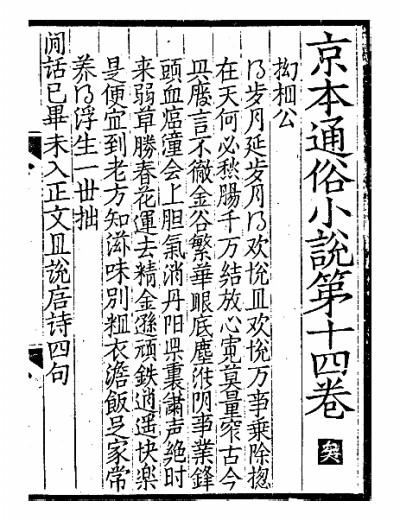 京本通俗小說第十四卷
拗相公
得岁月延岁月得欢悅且欢悅万事乗除揔
在天何必愁腸千万結放心寬莫量窄古今
興廢言不徹金谷繁華眼底塵淮阴事業鋒
頭血临潼会上胆氣消丹阳県裏簫声絶时
来弱草勝春花運去精金遜頑鉄逍遥快樂
是便宜到老方知滋味別粗衣澹飯足家常
养得浮生一世拙
閒話已畢未入正文且說唐詩四句